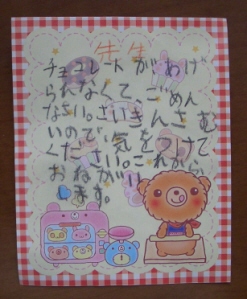 先生
チョコレートがあげ
られなくて、ごめん
なさい。さいきんさむ
いので気をつけて
ください。これから
おねがいし
ます。